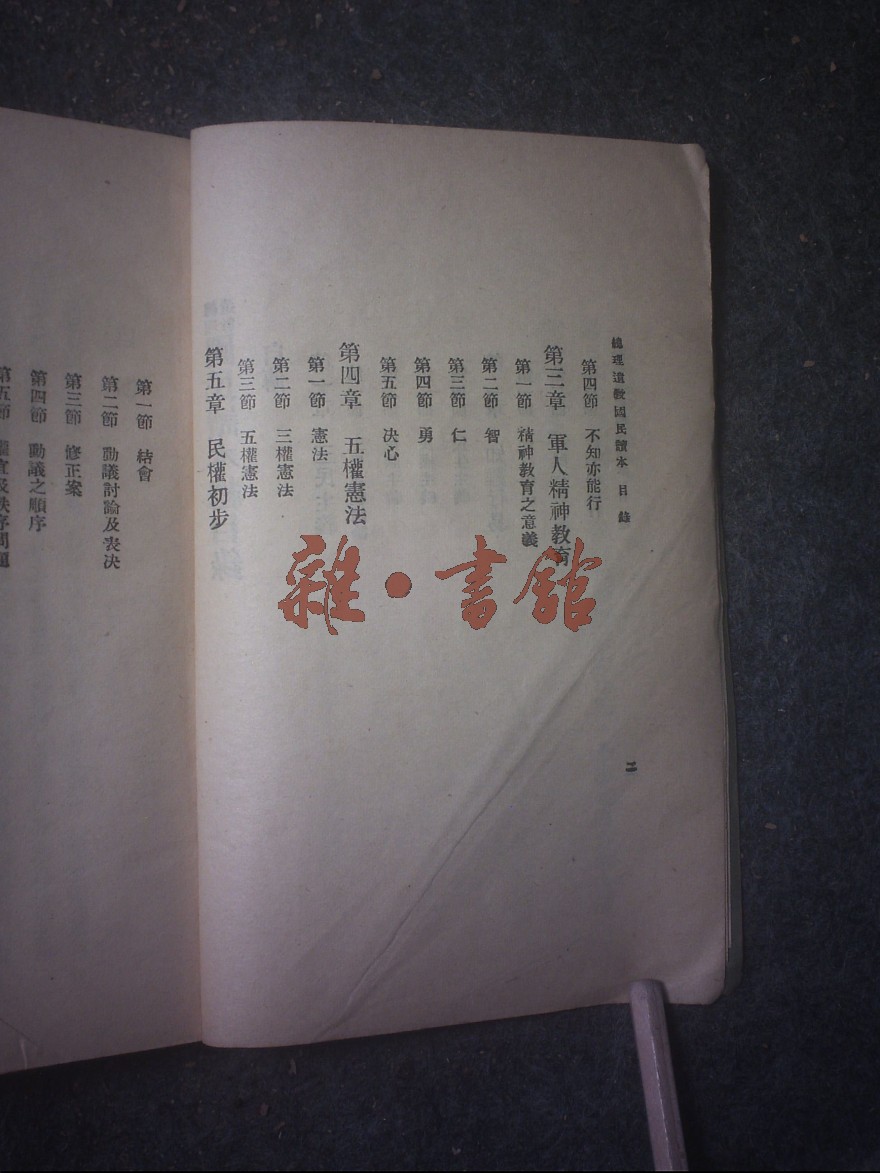 總理遺教國民讀本 目錄
第四節 不知亦能行
第三章 軍人精神教育
第一節 精神教育之意義
第二節 智
第三節 仁
第四節 勇
第五節 決心
第四章 五權憲法
第一節 憲法
第二節 三權憲法
第三節 五權憲法
第五章 民權初步
二
第一節 結會
第二節 動議討論及表決
第三節 修正案
第四節 動議之順序
第五節 權宜及秩序問題
雜·書館